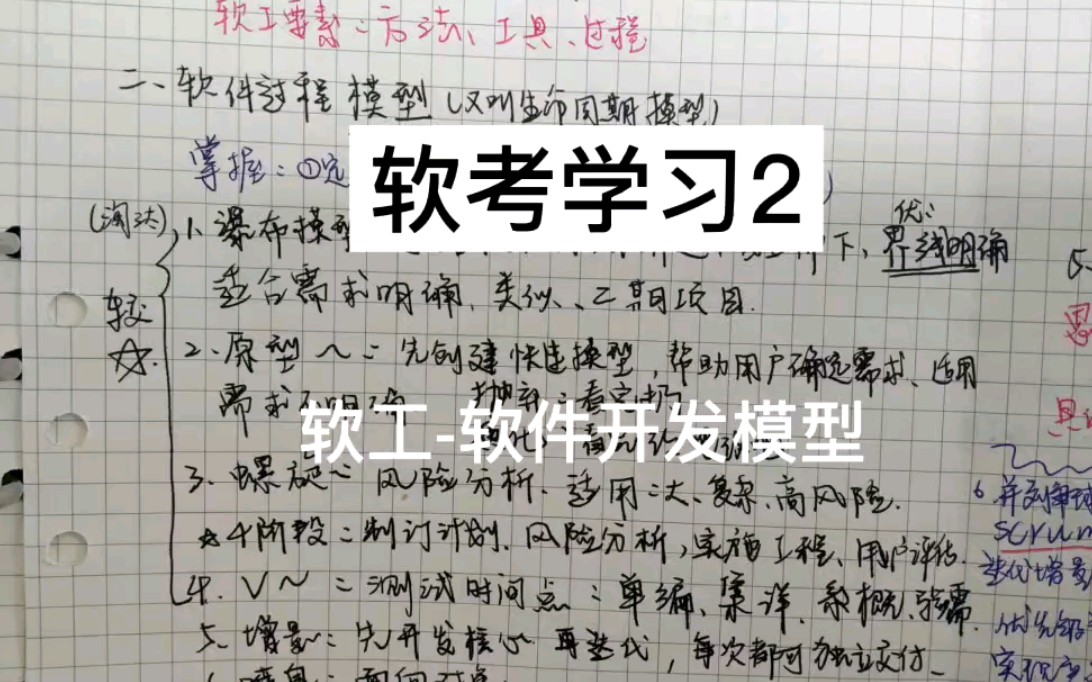 软工要素：方法、工具、过程
二、软件过程模型（又叫生命周期模型）
掌握：①定
软考学习2
（淘汰）
1、瀑布模型
下，界线明确
优：
适合需求明确、类似、二期项目.
较
☆.
2、原型～：先创建快速模型，帮助用户确定需求、适用
需求不明确
抛弃：看完扔
软工-软件开发模型
3、螺旋～：风险分析. 适用：大、复杂、高风险.
☆4阶段：制订计划、风险分析，实施工程、用户评估.
4. V～：测试时间点：单编、集详、系概、验需.
5、增量：先开发核心 再迭代，每次都可独立交付.
6、喷泉：面向对象
5.
6
scrum
迭代增量
优先级